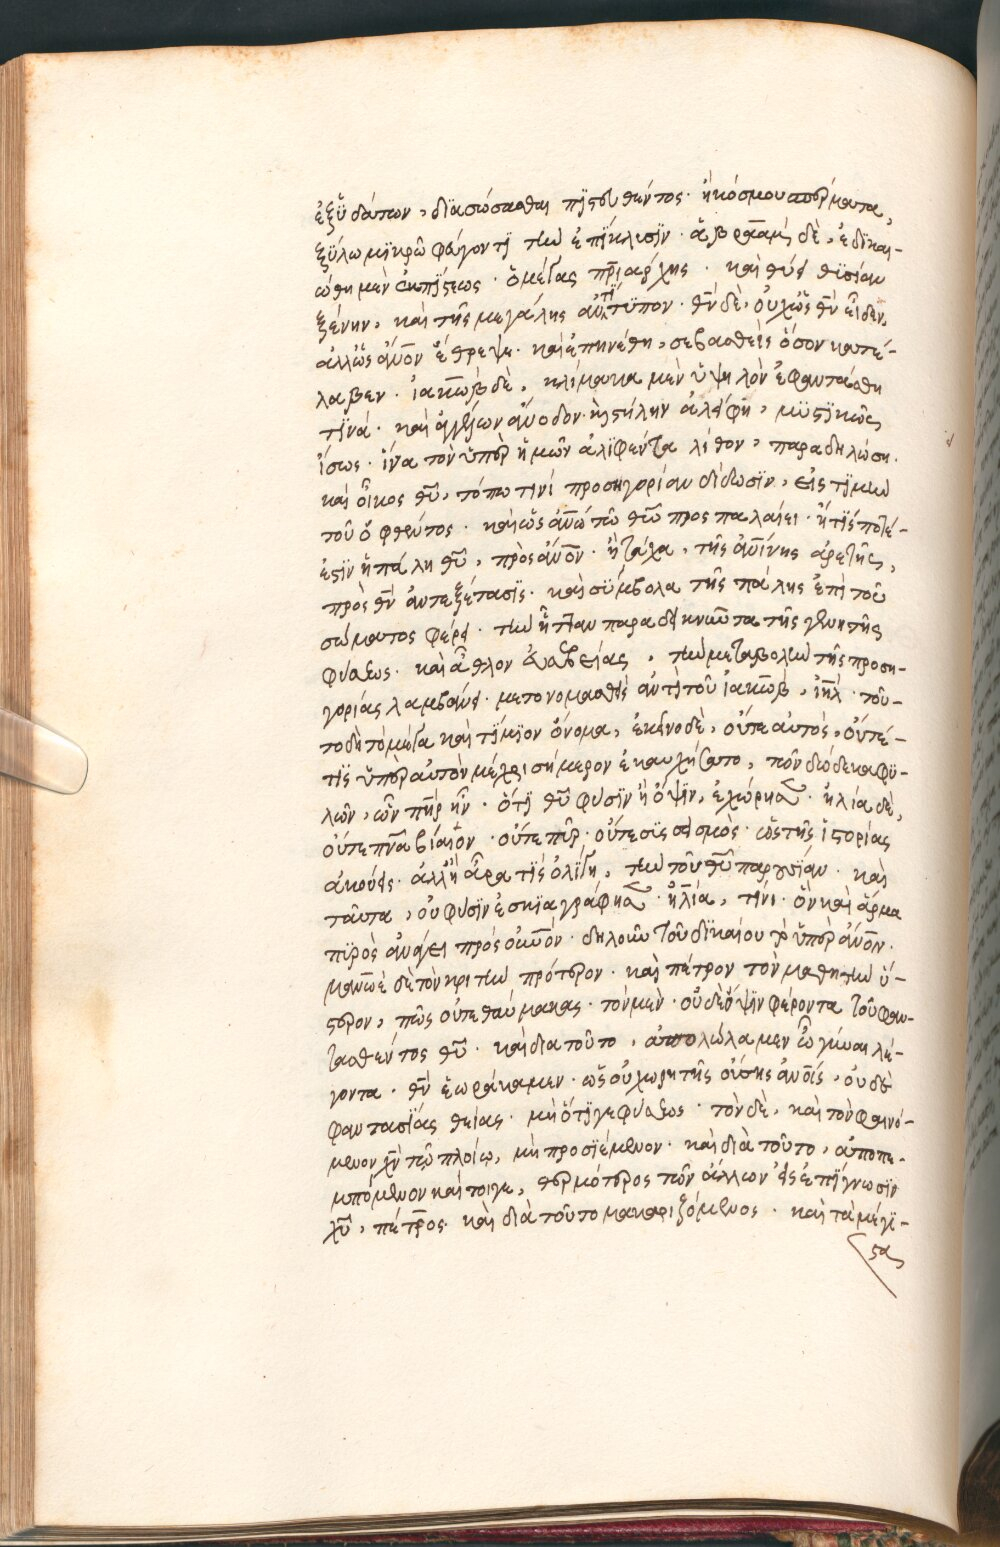 ἐξ ὑδάτων, διασώσασθαι πιστευθέντος. ἢ κόσμου σπέρματα,
ξύλω μικρῶ φεύγοντι τὴν ἐπίκλισιν. ἀβραὰμ δὲ, ἐδικαι-
ώθη μὲν ἐκ πίστεως. ὁ μέγας πριάρχης. καὶ θύει θυσίαν
ξένην, καὶ τῆς μεγάλης ἀντίτυπον. θν δὲ, οὐχ ὡς θν εἶδεν,
ἀλλ' ὡς ἀνον ἔθρεψε. καὶ ἐπηνέθη, σεβασθεὶς ὅσον κατέ-
λαβεν. ἰακὼβ δὲ, κλίμακα μὲν ὑψηλὸν ἐφαντάσθη
τινά. καὶ ἀγγέλων ἄνοδον. κὴ στήλην ἀλείφει, μυστικῶς
ἴσως. ἵνα τὸν ὑπὲρ ἡμῶν ἀλιφέντα λίθον, παραδηλώση.
καὶ οἶκος θυ, τόπω τινί προσηγορίαν δίδωσιν, εἰς τιμὴν
τοῦ ὀφθέντος. καὶ ὡς ἀνω τῶ θω προσπαλαίει. ἥτις ποτέ-
ἐστιν ἡ πάλη θυ, πρὸς ἀνον. ἢ τάχα, τῆς ἀνίνης ἀρετῆς,
πρὸς θν ἀντεξέτασις. καὶ σύμβολα τῆς πάλης ἐπὶ τοῦ
σώματος φέρει. τὴν ἧτταν παραδεικνῶντα τῆς γεννητῆς
φύσεως. καὶ ἆθλον εὐσεβείας, τὴν μεταβολὴν τῆς προση-
γορίας λαμβάνει. μετονομασθεὶς ἀντὶ τοῦ ἰακὼβ, ιηλ. τοῦ-
το δὴ τὸ μέγα καὶ τίμιον ὄνομα, ἐκεῖνο δὲ, οὔτε αὐτὸς, οὔτέ-
τις ὑπὲρ αὐτὸν μέχρι σήμερον ἐκαυχήσατο, τῶν δώδεκα φυ-
λῶν, ὧν πηρ ἦν. ὅτι θυ φύσιν ἢ ὄψιν, ἐχώρησε. ἠλία δὲ,
οὔτε πνα βίαιον. οὔτε πῦρ. οὔτε συσσεισμὸς. ὡς τῆς ἱστορίας
ἀκούεις. ἀλλ' ἢ αὖρα τίς ὀλίγη, τὴν τοῦ θυ παρουσίαν. καὶ
ταῦτα, οὐ φύσιν ἐσκιαγράφησε. ἠλία, τίνι. ὃν καὶ ἅρμα
πυρὸς ἀνάγει πρὸς ουνον. δηλοῦν τοῦ δικαίου τὸ ὑπὲρ ἀνον.
μανωὲ δὲ τὸν κριτὴν πρότερον. καὶ πέτρον τὸν μαθητὴν ὕ-
στερον, πῶς οὐ τεθαύμακας. τὸν μὲν. οὐδὲ ὄψιν φέροντα τοῦ φαν-
τασθέντος θυ. καὶ διατοῦτο, ἀπολώλαμεν ὦ γύναι λέ-
γοντα. θν ἑωράκαμεν. ὡς οὐ χωρητῆς οὔσης ἀνοις, οὐδὲ
φαντασίας θείας. μὴ ὅτι γε φύσεως. τὸν δὲ, καὶ τὸν φαινό-
μενον χν τῷ πλοίῳ, μὴ προσιέμενον. καὶ διὰ τοῦτο, ἀποπε-
μπόμενον καίτοιγε, θερμότερος τῶν ἄλλων εἰς ἐπίγνωσιν
χυ, πέτρος. καὶ διὰ τοῦτο μακαριζόμενος. καὶ τὰ μέγι-
στα